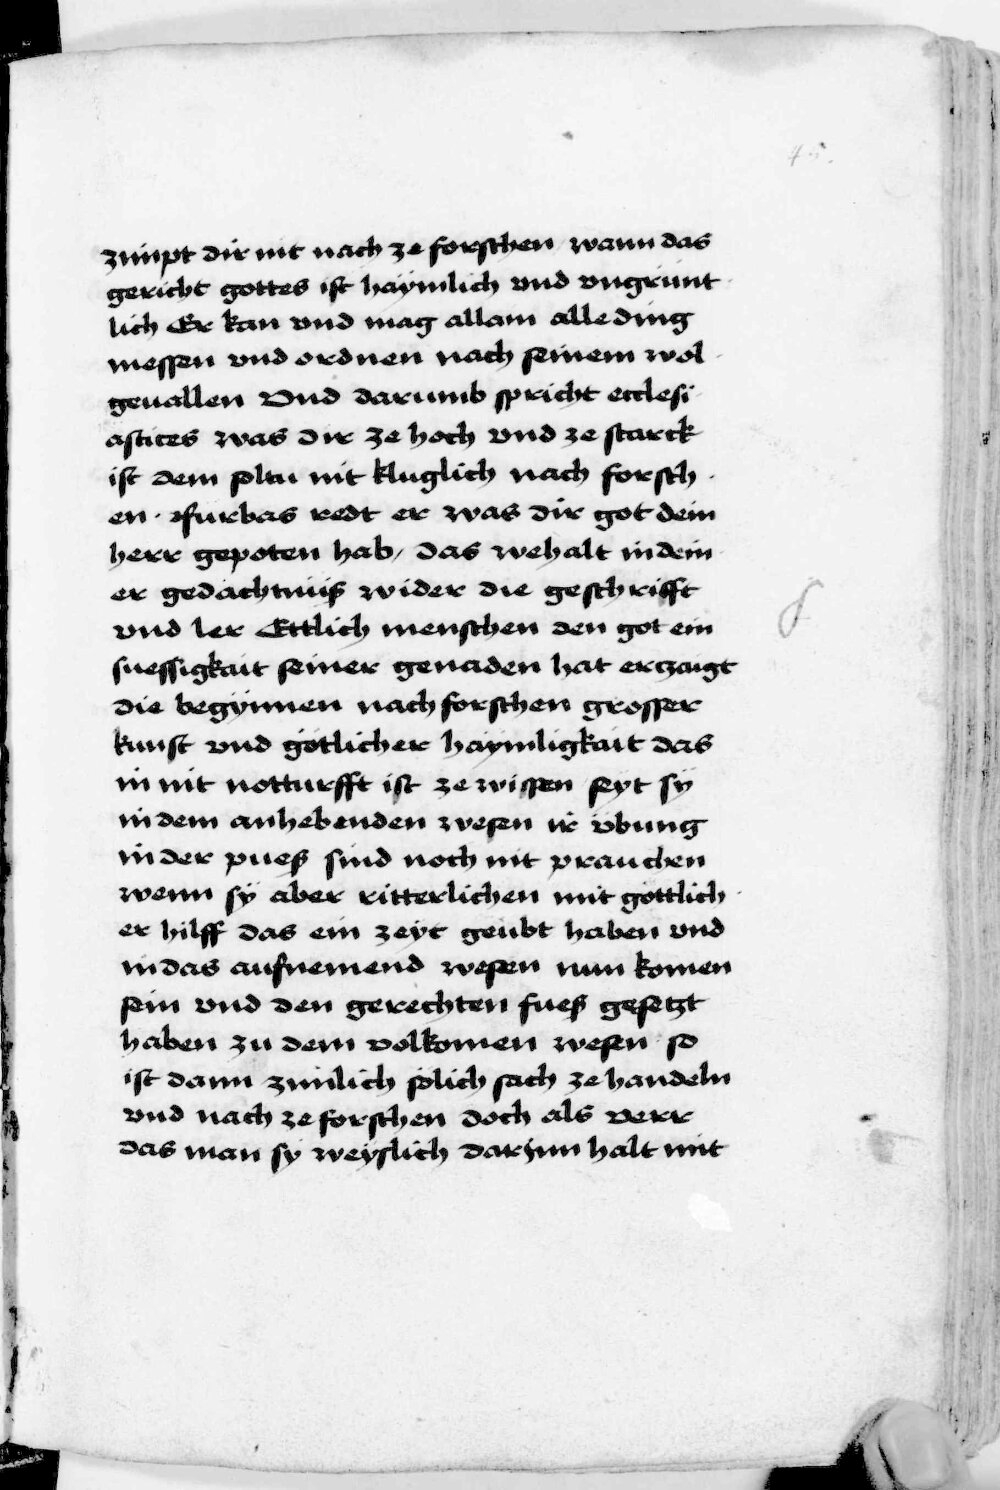 45.
zimpt dir nit nach ze forschen / wann das
gericht gottes ist haÿmlich vnd vngrunt
lich Er kan vnd mag allain alle ding
messen vnd ordnen nach seinem wol
geuallen Vnd darumb spricht ecclesi
astices was dir ze hoch vnd ze starck
ist dem soltu nit kluglich nach forsch
en · Furbas redt er was dir got dein
herr gepoten hab / das wehalt in dein
er gedachtnuß wider die geschrifft
vnd ler Ettlich menschen den got ein
suessigkait seiner genaden hat erczaigt
die begÿnnen nach forschen grosser
kunst vnd gotlicher haymligkait das
in nit notturfft ist ze wissen seyt sÿ
in dem anhebenden wesen ir vbung
in der pueß sind noch nit prauchen
wenn sÿ aber ritterlichen mit gottlich
er hilff das ein zeyt geubt haben vnd
in das aufnemend wesen nun komen
sein vnd den gerechten fueß gesetzt
haben zu dem volkomen wesen so
ist dann zimlich solich sach ze handeln
vnd nach ze forschen doch als verr
das man sy weyslich darynn halt mit